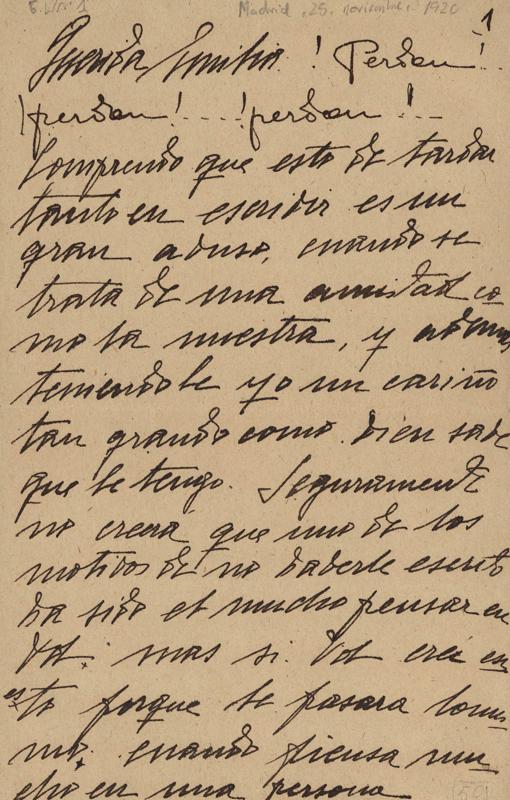 Madrid, 25, noviembre, 1920
1
Querida Emilia! Perdon!..
¡perdon!....¡perdon!...
Comprendo que esto de tardar
tanto en escribir es un
gran abuso, cuando se
trata de una amistad co
mo la nuestra, y además
teniendole yo un cariño
tan grande como bien sabe
que le tengo. Seguramente
no creerá que uno de los
motivos de no haberle escrito
ha sido el mucho pensar en
Vd. mas si. Vd cree en
esto porque le pasara lo mis
mo, cuando piensa mu
cho en una persona